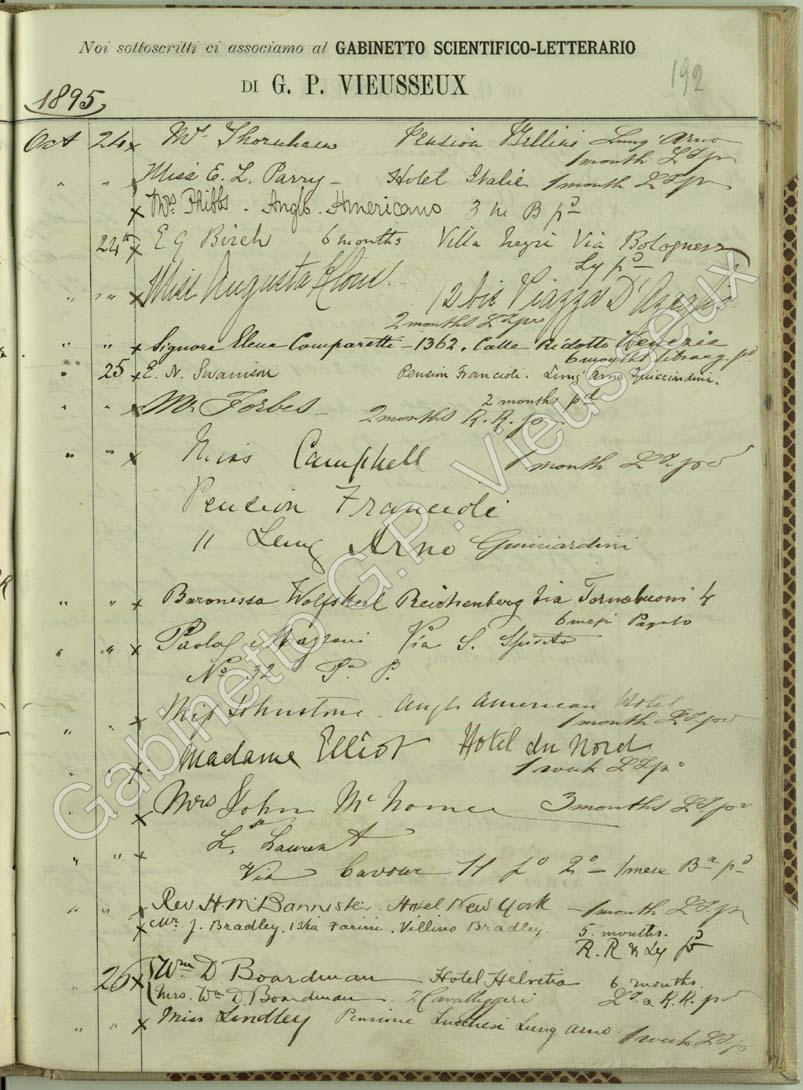 Noi sottoscritti ci associamo al GABINETTO SCIENTIFICO-LETTERARIO
192
DI G. P. VIEUSSEUX
1895
Oct 24 x Mrs Pension Bellini Lung' Arno
1 month
" " Miss E. L. Parry - Hotel Italie 1 month
x Mrs Phibbs - Anglo. Americano 3 me B pd
24th x E G Birch 6 months Villa Negri Via Bolognese
Ly pd
" " " x Miss Augusta 12 bis Piazza D'Azeglio
2 months
" " x Signora Elena Comparetti - 1362. Calle Ridotto Venezia
6 months library pd
" 25 x E. N. Swainson Pension Francioli. Lung' Arno Guicciardini.
2 months pd
" " x Mr Forbes - 2 months R. R. pd
" " x Miss Campbell 1 month
Pension Francioli
11 Lung Arno Guicciardini
" " x Baronessa Wolfskeel Reichenberg Via Tornabuoni 4
6 mesi Pagato
" " x Paola Mazzoni Via S. Spirito
No 32 Po P.
" " x Miss Johnstone. Anglo American Hotel
1 month
" " x Madame Elliot Hotel du Nord
1 week
" " x Mrs John 3 months
" " x Laurent
Via Cavour 11 po 2o - 1 mese Ba pd
" " x Rev H M Bannister. Hotel New York - 1 month
x Mr. J. Bradley. Via Farini. Villino Bradley 5. months.
R. R & Ly pd
" 26 x Wm D Boardman Hotel Helvetia 6 months.
Mrs. Wm D. Boardman 2 Cavalleggeri R. R. pd
" " x Miss Lindley Pensione Lucchesi Lung Arno
1 week
Gabinetto G.P. Vieusseux